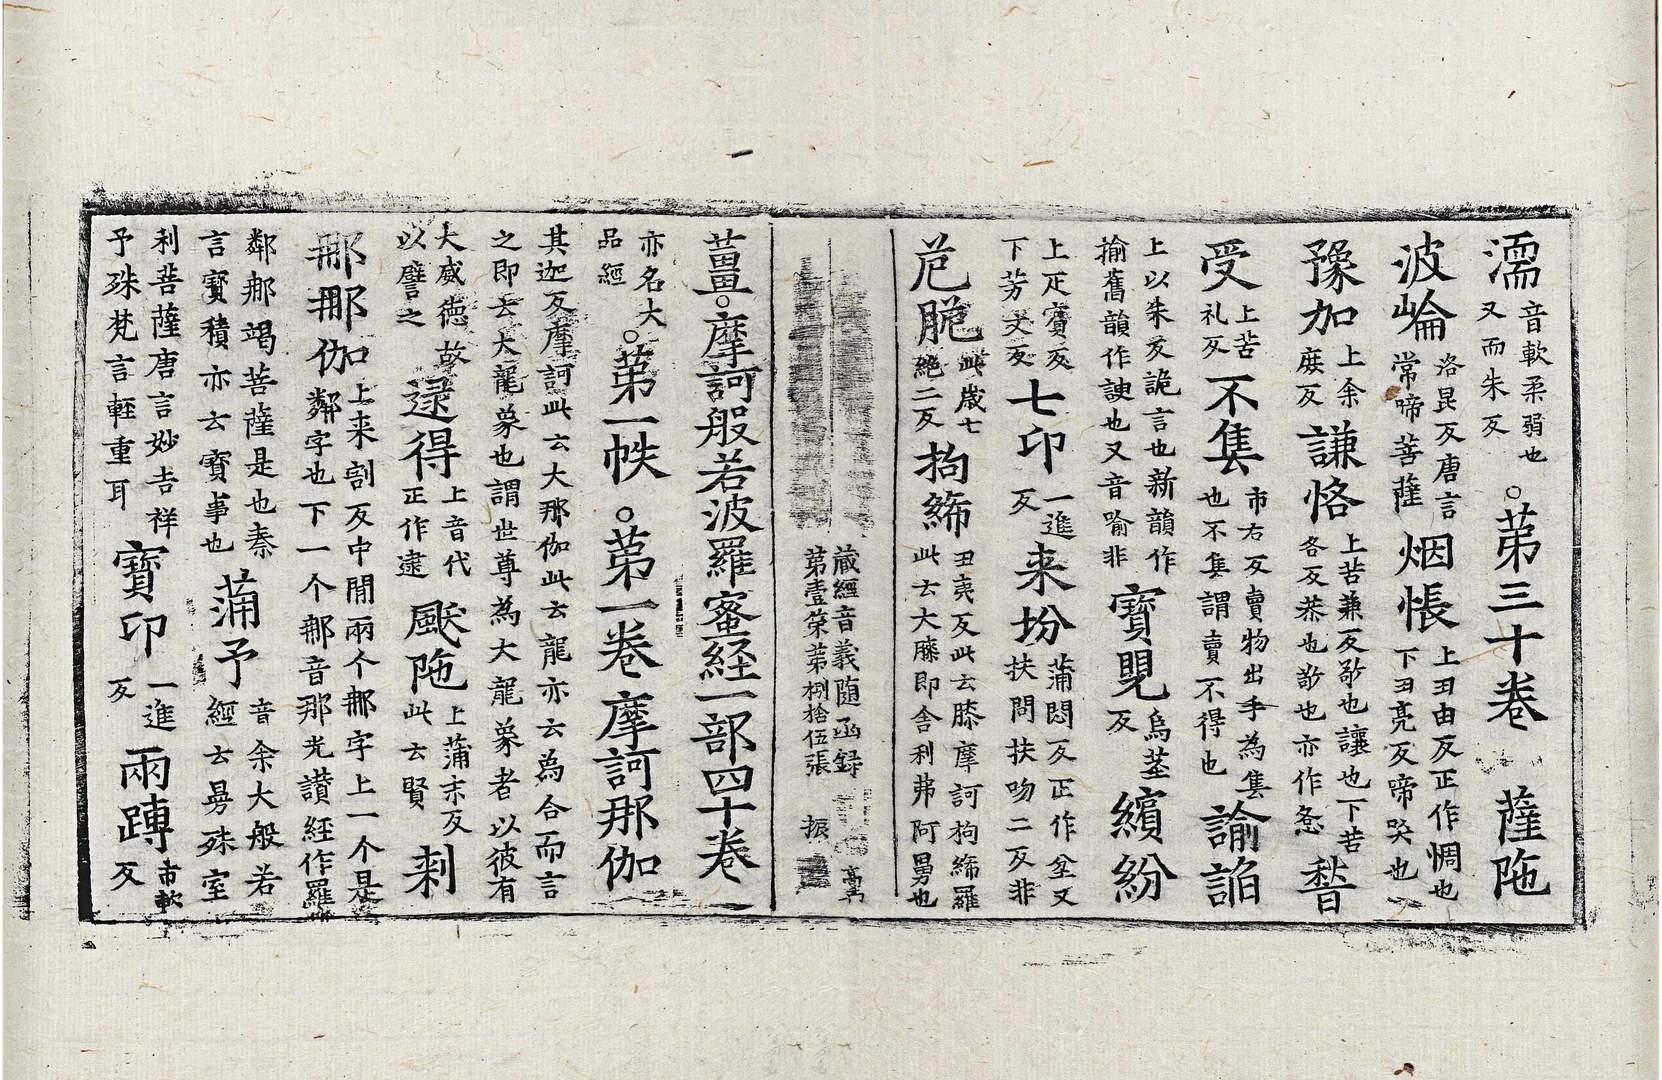 濡音軟柔弱也又而朱反。苐三十卷 薩陁
波崘洛昆反唐言常啼菩薩烟悵上丑由反正作惆也下丑亮反啼哭也
豫加上余庻反謙恪上苦兼反敬也讓也下苦各反恭也敬也亦作愙
受上苦礼反不售市右反賣物出手為售也不售謂賣不得也諭諂
上以朱反詭言也新韻作揄舊韻作諛也又音喻非寶覞烏莖反繽紛
上疋賓反下芳文反七印一進反来坋蒲悶反正作坌又扶問扶吻二反非
苊脆此歳七絕二反拘絺丑夷反此云膝摩訶拘絺羅此云大膝即舍利弗阿舅也
蔵經音義随函録
第壹第捌拾伍張 振
薑。摩訶般若波羅蜜経一部四十卷
亦名大品經。苐一帙。苐一卷摩訶那伽
其迦反摩訶此云大那伽此云龍亦云為合而言之即云大龍象也謂世尊為大龍象者以彼有
大威徳故以譬之逯得上音代正作逮颰陁上蒲末反此云賢剌
那那伽上来割反中閒兩个那字上一个是鄰字也下一个那音那光讃経作羅
鄰那竭菩薩是也秦言寳積亦云寳事也蒲予音余大般若經云曼殊室
利菩薩唐言妙吉祥予殊梵言輕重耳寶印一進反兩䏝市軟反